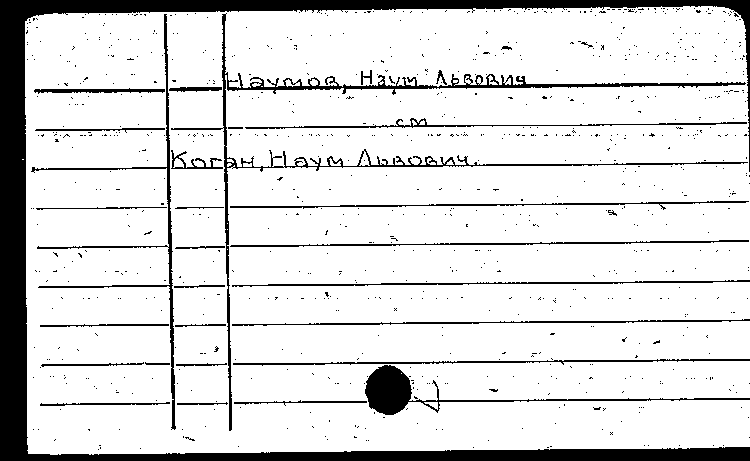 Наумов, Наум Львович
см
Коган, Наум Львович.